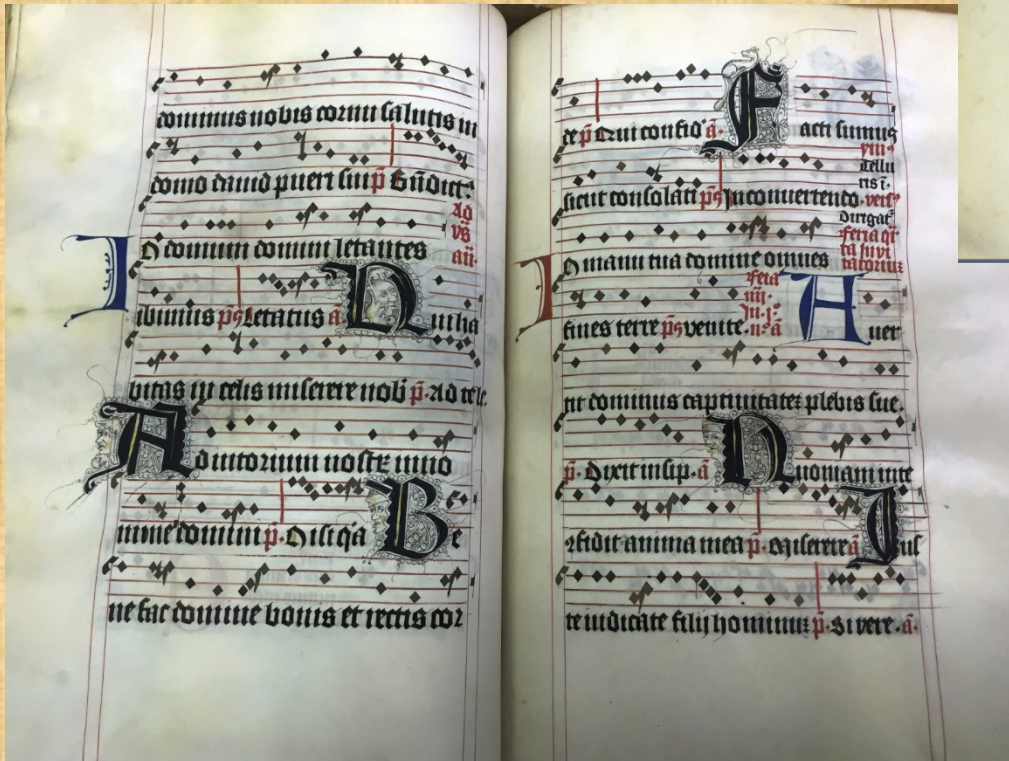 dominus nobis cornu salutis in
domo david pueri sui p̄ Bn̄dict⁹
Ad
vs̄
an̄.
In domum domini letantes
ibimus p̄s Letatus ā Qui ha
bitas in celis miserere nob̄ p̄. Ad te le
Adiutorium nostr̄ in no
mine domini p̄. Nisi q̄a Be
ne fac domine bonis et rectis cor
de p̄ Qui confid̄ ā. Facti sumus
sicut consolati p̄s In convertendo.
viii⁹
tellu
ris ī.
vers⁹
dirigat̄
feria q̄r
ta invi
tatoriuz
In manu tua domine omnes
fines terre p̄s venite.
feria
iiij.
in .j.
n⁰ ā
Auer
tit dominus captivitatez plebis sue.
p̄. Dixit insip. ā Quoniam in te
confidit anima mea p̄. Miserere ā Jus
te iudicate filij hominuz p̄. Si vere. ā.